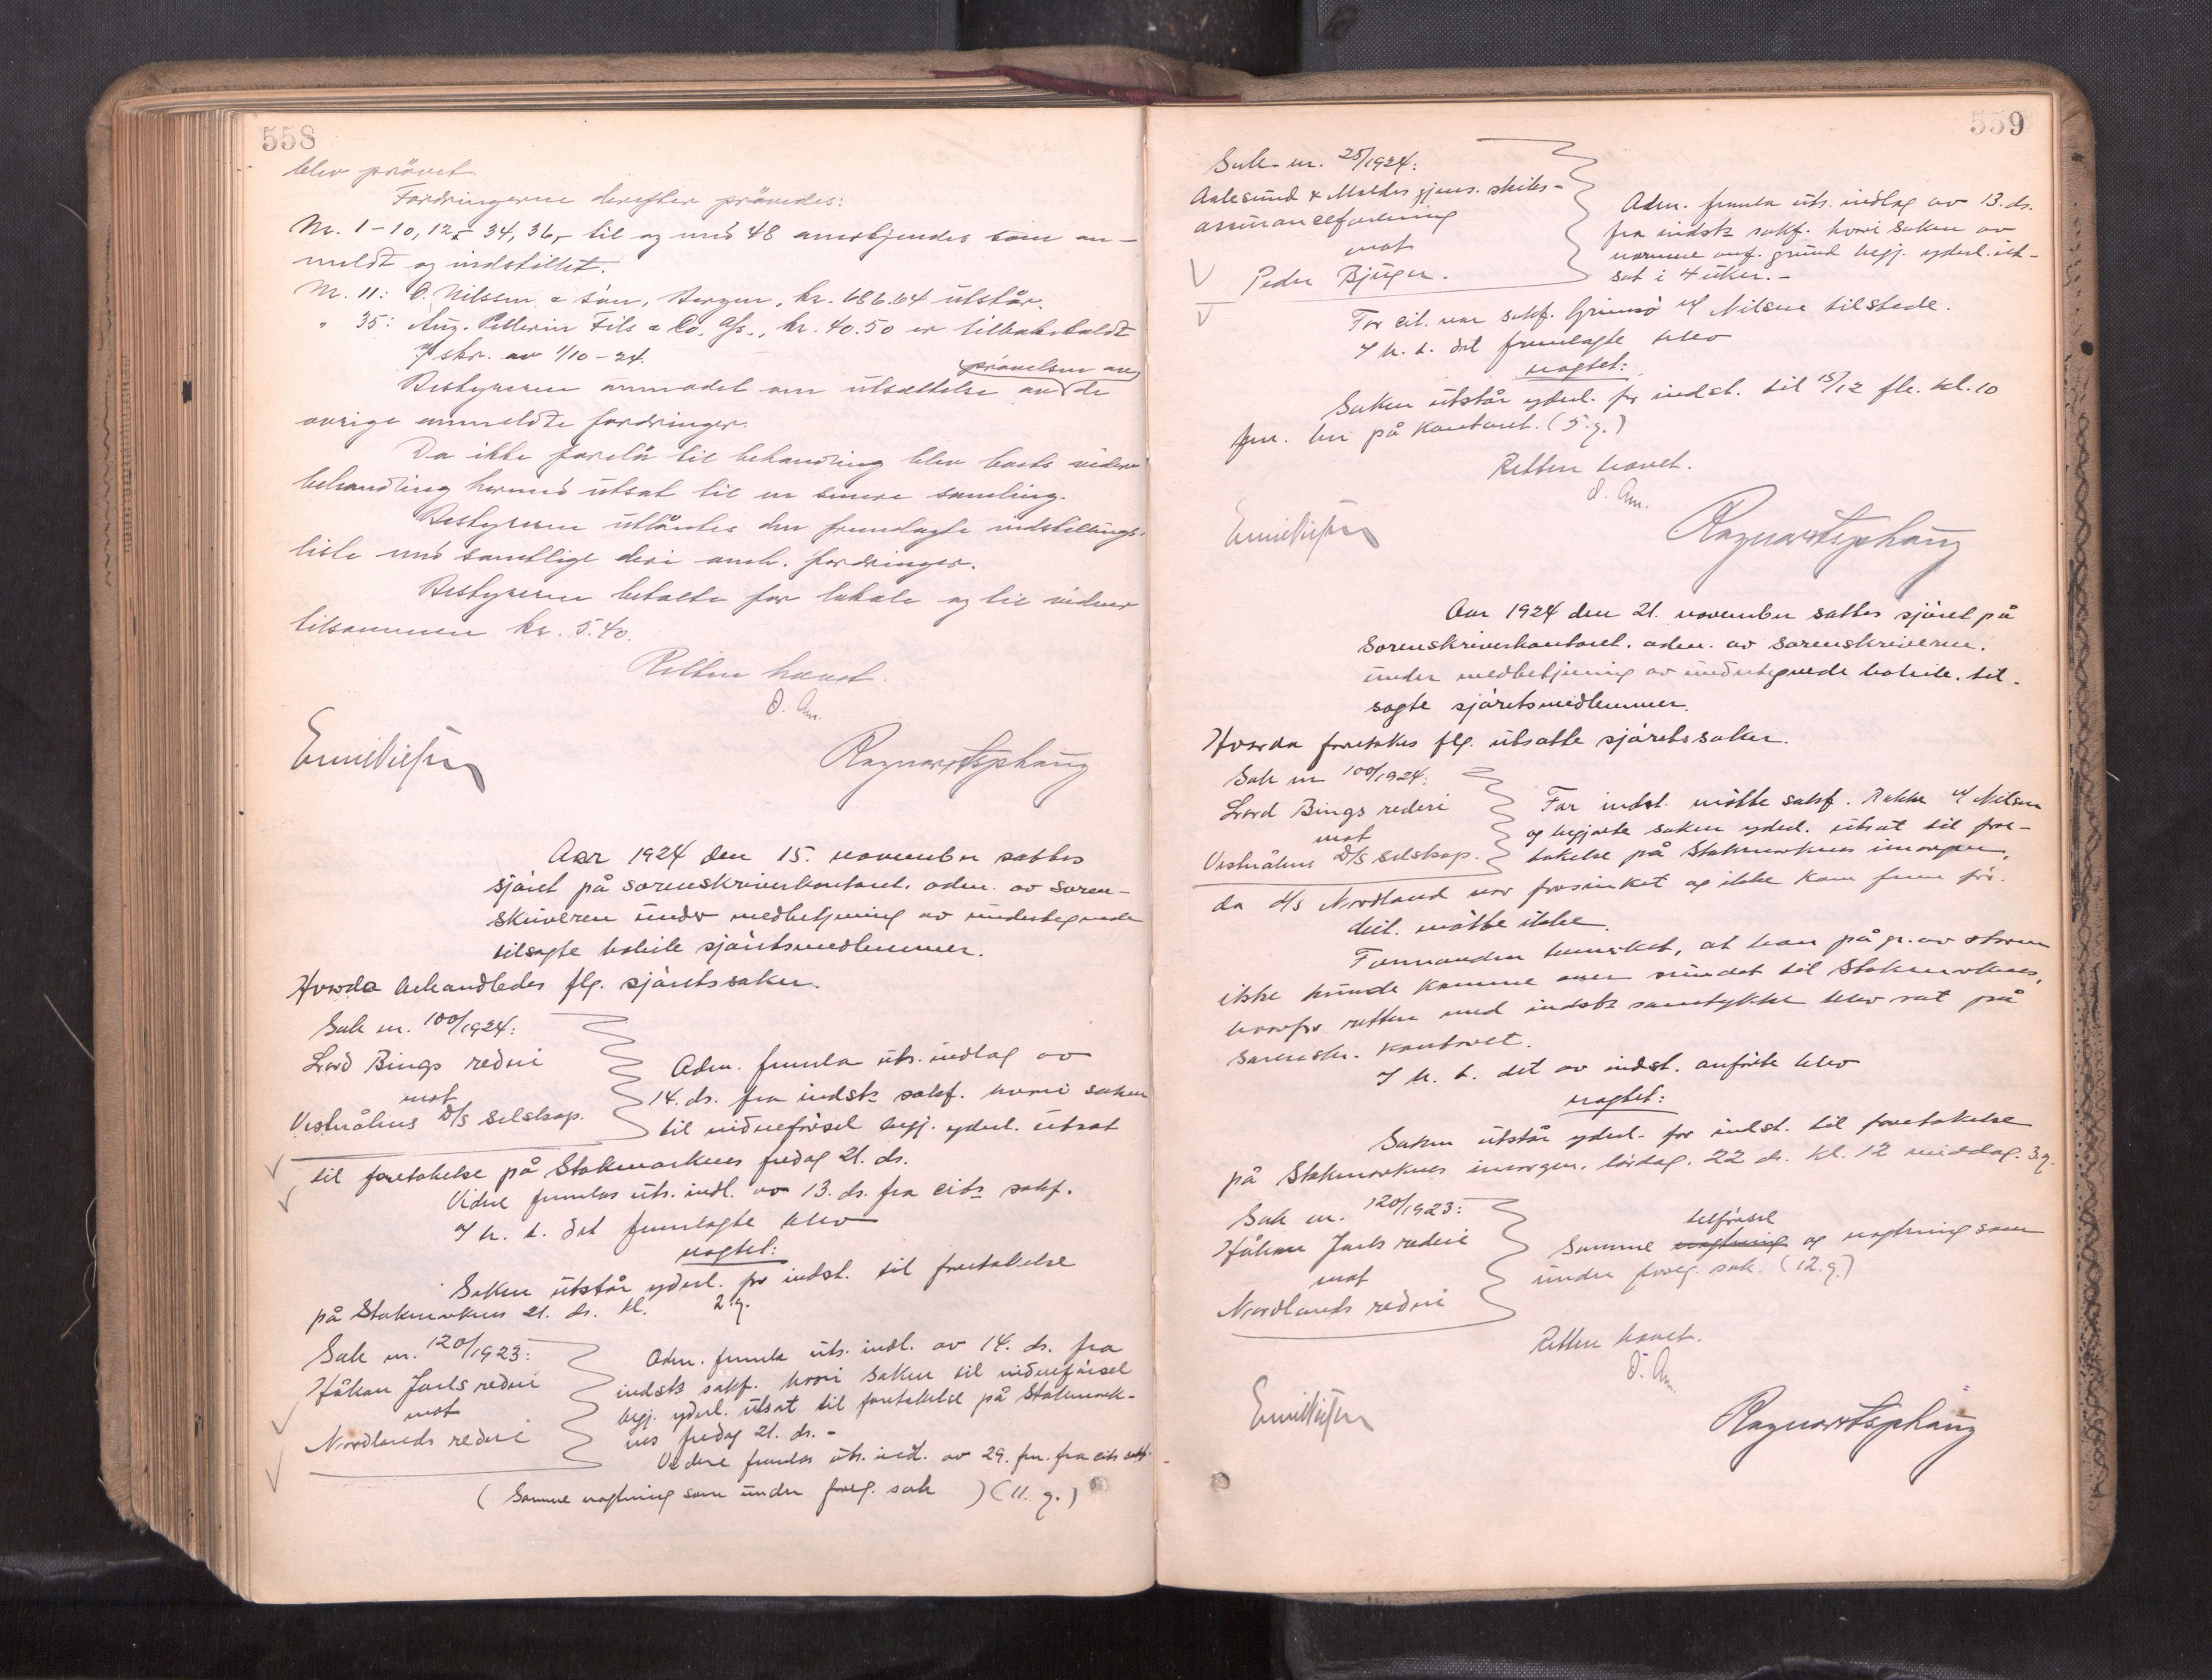 558
blev prövet.
Fordringerne derefter prövedes:
Nr. 1-10, 12,- 34, 36,- til og med 48 anerkjendes som an-
meldt og indstillet.
Nr. 11: O. Nilssen & sön, Bergen, kr. 686.64 utstår.
" 35: Aug. Pellerin Fils & Co. A/s., kr. 40.50 er tilbakekaldt
if skr. av 1/10-24.
prövelsen av
Bestyreren anmodet om utsættelse av de
övrige anmeldte fordringer.
Da ikke forelå til behandling blev boets videre
behandling hermed utsat til en senere samling.
Bestyreren utlåntes den fremlagte indstillings-
liste med samtlige deri anm. fordringer.
Bestyreren betalte for lokale og til vidner
tilsammen kr. 5.40.
Retten hævet.
O. Am.
Ragnar
Aar 1924 den 15. november sattes
sjöret på sorenskriverkontoret. adm. av soren-
skriveren under medbetjening av undertegnede
tilsagte habile sjöretsmedlemmer.
Hvorda behandledes flg. sjöretssaker.
Sak nr. 100/1924:
Lord Bings rederi
mot
Vesterålens D/s selskap.
Adm. fremla uts. indlag av
14. ds. fra indstk sakf. hvori saken
til vidneförsel begj. yderl. utsat
til foretakelse på Stokmarknes fredag 21. ds.
Videre fremlas uts. indl. av 13. ds. fra cits sakf.
I h. t. det fremlagte blev
vagtet:
Saken utstår yderl. for indst. til foretakelse
på Stokmarknes 21. ds. kl. 2.g.
Sak nr. 120/1923:
Håkon Jarls rederi
mot
Nordlands rederi
Adm. fremla uts. indl. av 14. ds. fra
indstk sakf. hvori saken til vidneförsel
begj. yderl. utsat til foretakelse på Stokmark-
nes fredag 21. ds. -
Videre fremlas uts. indl. av 29. fm. fra cits sakf.
( Samme vagtning som under foreg. sak ) (11. g.)
559
Sak nr. 25/1924:
Aalesund & Moldes gjens. skibs-
assuranceforening
mot
Peder Bjügn.
Adm. fremla uts. indlag av 13. ds.
fra indstk sakf. hvori saken av
nærmere anf. grund begj. yderl. ut-
sat i 4 uker. -
For cit. var sakf. Grimsö v/ Nilsen tilstede.
I h. t. det fremlagte blev
vagtet:
Saken utstår yderl. for indst. til 15/12 flc. kl. 10
fm. her på kontoret. (5.g.)
Retten hævet.
O. Am.
Ragnar
Aar 1924 den 21. november sattes sjöret på
sorenskriverkontoret. adm. av sorenskriveren.
under medbetjening av undertegnede habile. til-
sagte sjöretsmedlemmer.
Hvorda foretakes flg. utsatte sjöretssaker.
Sak nr 100/1924:
Lord Bings rederi
mot
Vesterålens D/s selskap.
For indst. mötte sakf. Rakke v/ Nilsen
og begjærte saken yderl. utsat til fore-
takelse på Stokmarknes imorgen,
da d/s Nordland var forsinket og ikke kom frem för.
Cit. mötte ikke.
Formanden bemerket, at han på gr. av storm
ikke kunde komme over sundet til Stokmarknes,
hvorfor retten med indstk samtykke blev sat på
sorenskr. kontoret.
I h. t. det av indst. anförte blev
vagtet:
Saken utstår yderl. for indst. til foretakelse
på Stokmarknes imorgen, lördag. 22 ds. kl. 12 middag. 3.g.
Sak nr. 120/1923:
Håkon Jarls rederi
mot
Nordlands rederi
tilförsel
Samme vagtning og vagtning som
under foreg. sak. (12.g.)
Retten hævet.
O. Am.
Ragnar